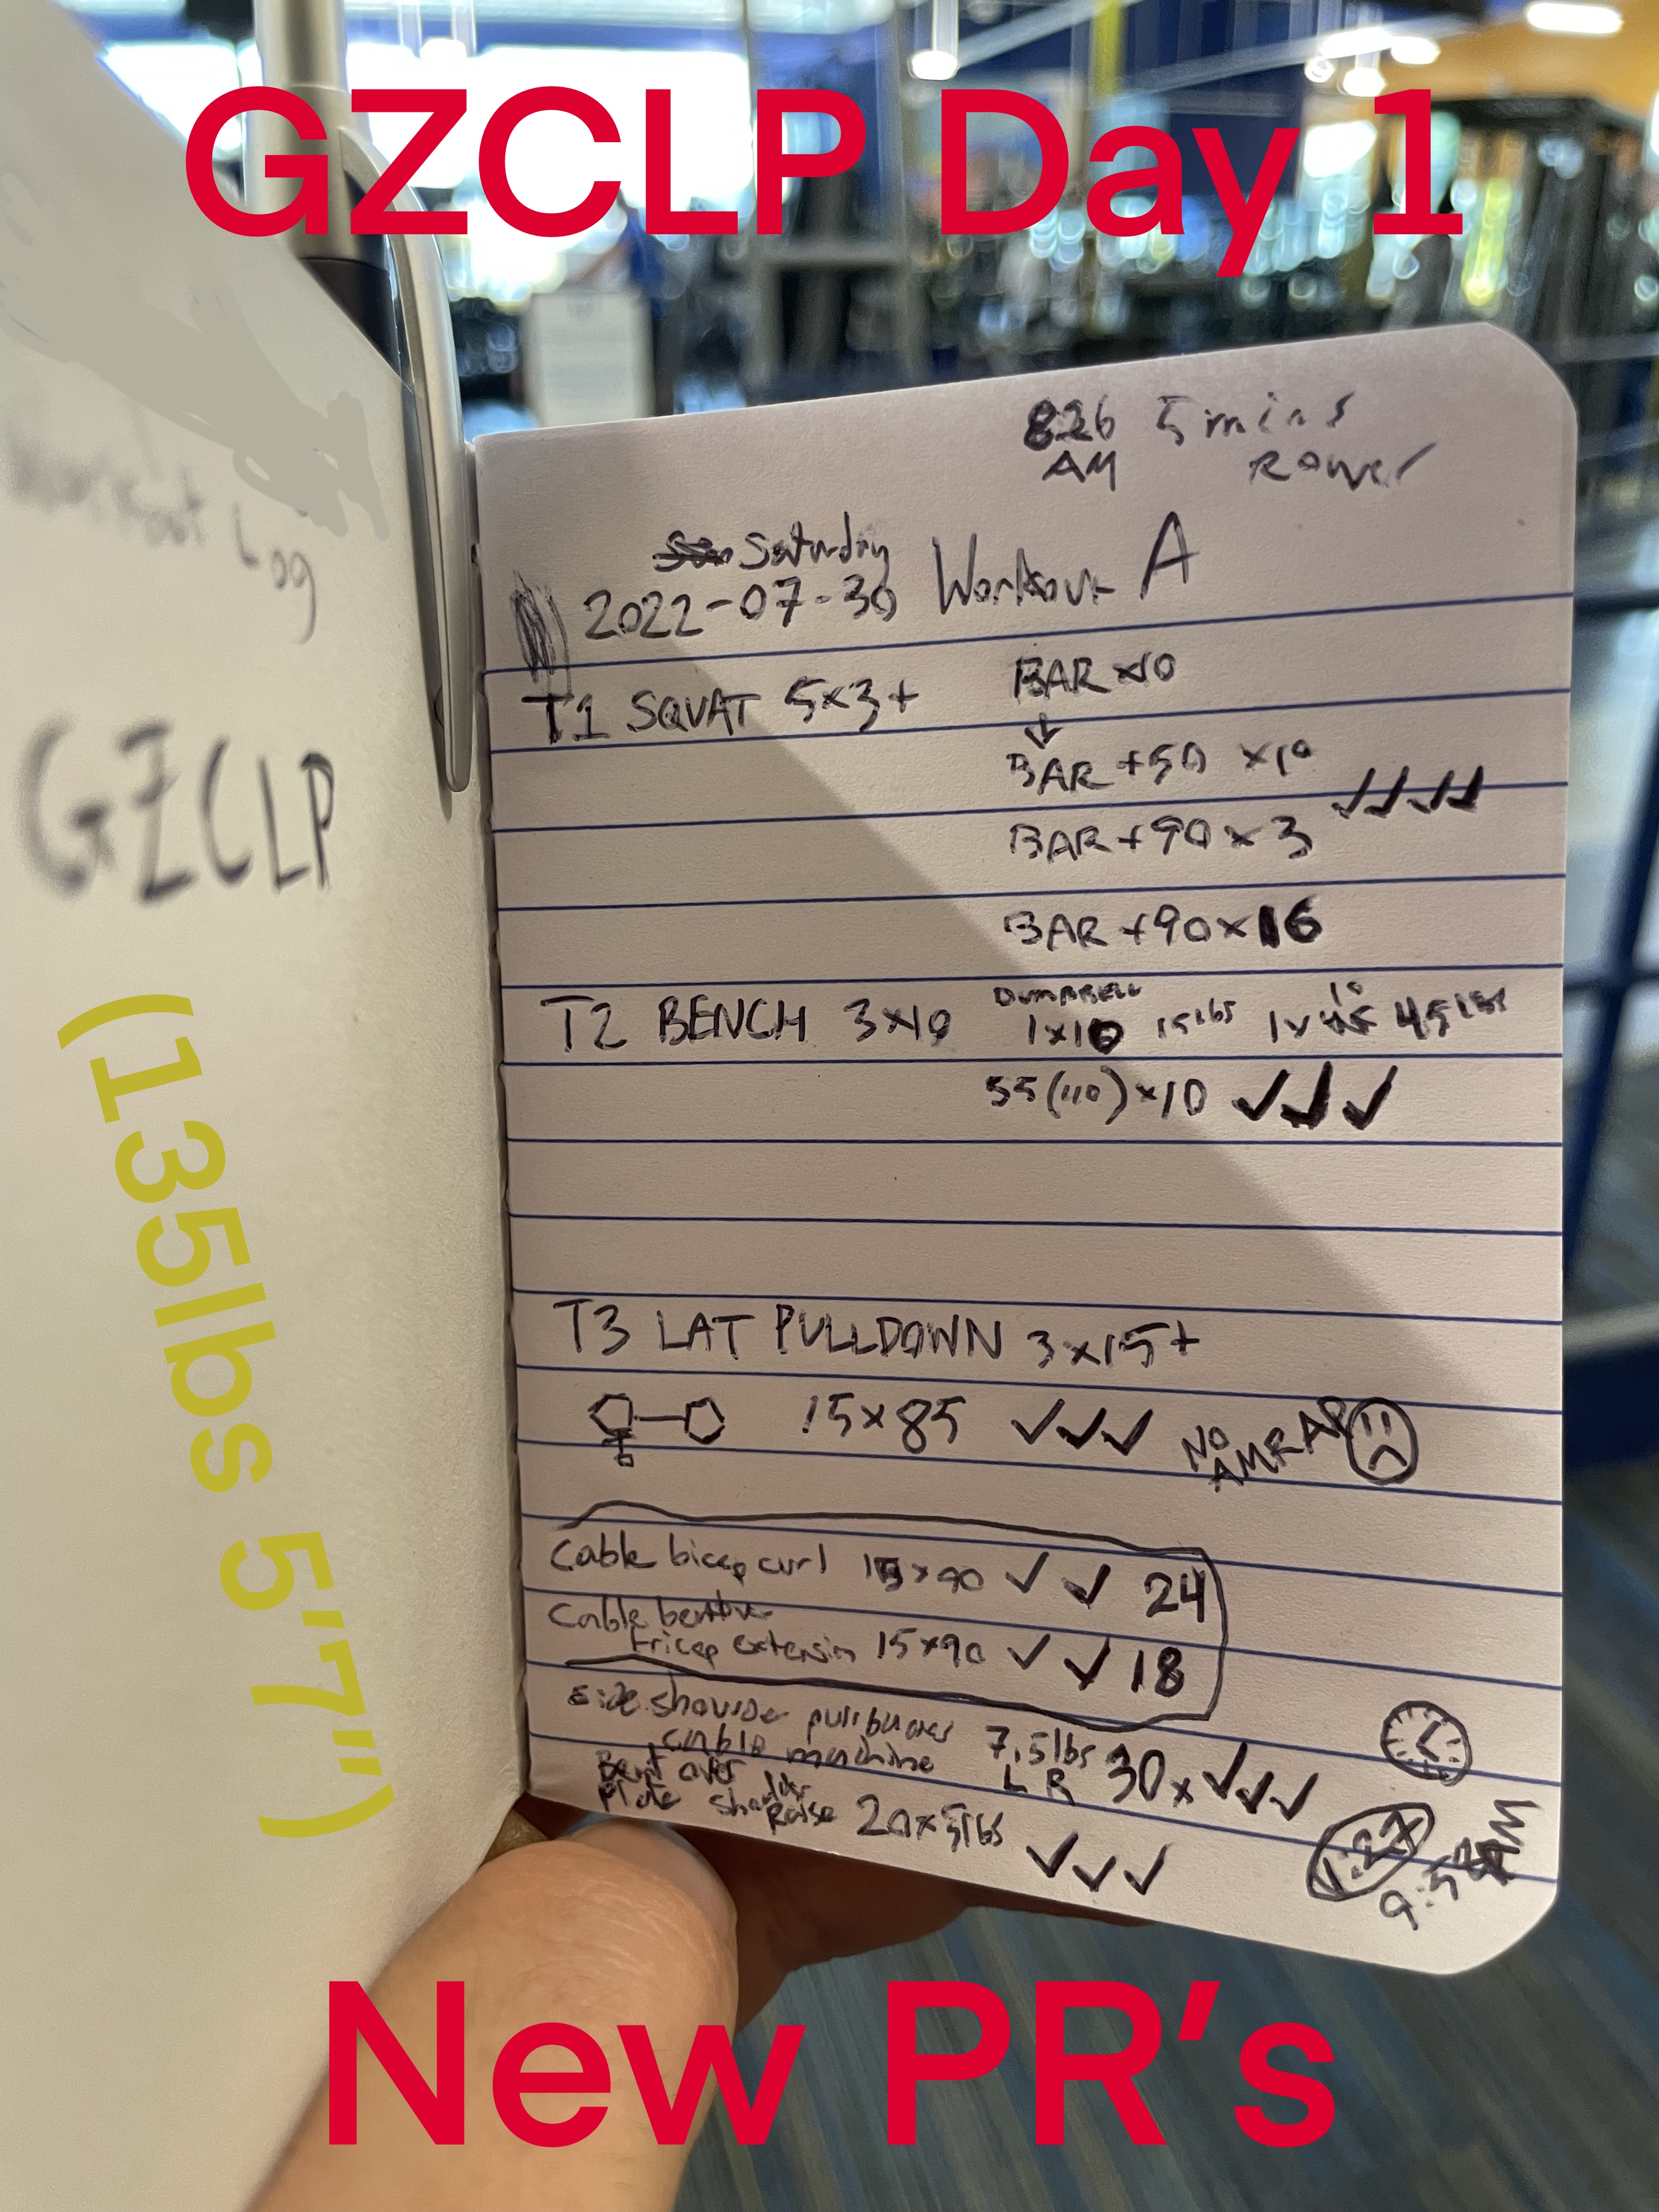 GZCLP Day 1
Workout Log
GZCLP
(135lbs 5'7")
826 5 mins
AM Rower
Saturday
2022-07-30 Workout A
T1 SQUAT 5x3+ BAR x10
↓
BAR +50 x10
BAR +90 x 3 ✓✓✓✓
BAR +90 x 16
T2 BENCH 3x10 DUMBBELL 1x10 15lbs 1x 10 45lbs
55(110) x10 ✓✓✓
T3 LAT PULLDOWN 3x15+
15x85 ✓✓✓ NO AMRAP
Cable bicep curl 15x90 ✓ ✓ 24
Cable
tricep extension 15x90 ✓ ✓ 18
side shoulder pull
cable machine 7.5lbs 30x ✓✓✓
L R
Bent over
Plate shoulder
Raise 20x5lbs ✓✓✓
1:27
9:53 AM
New PR's